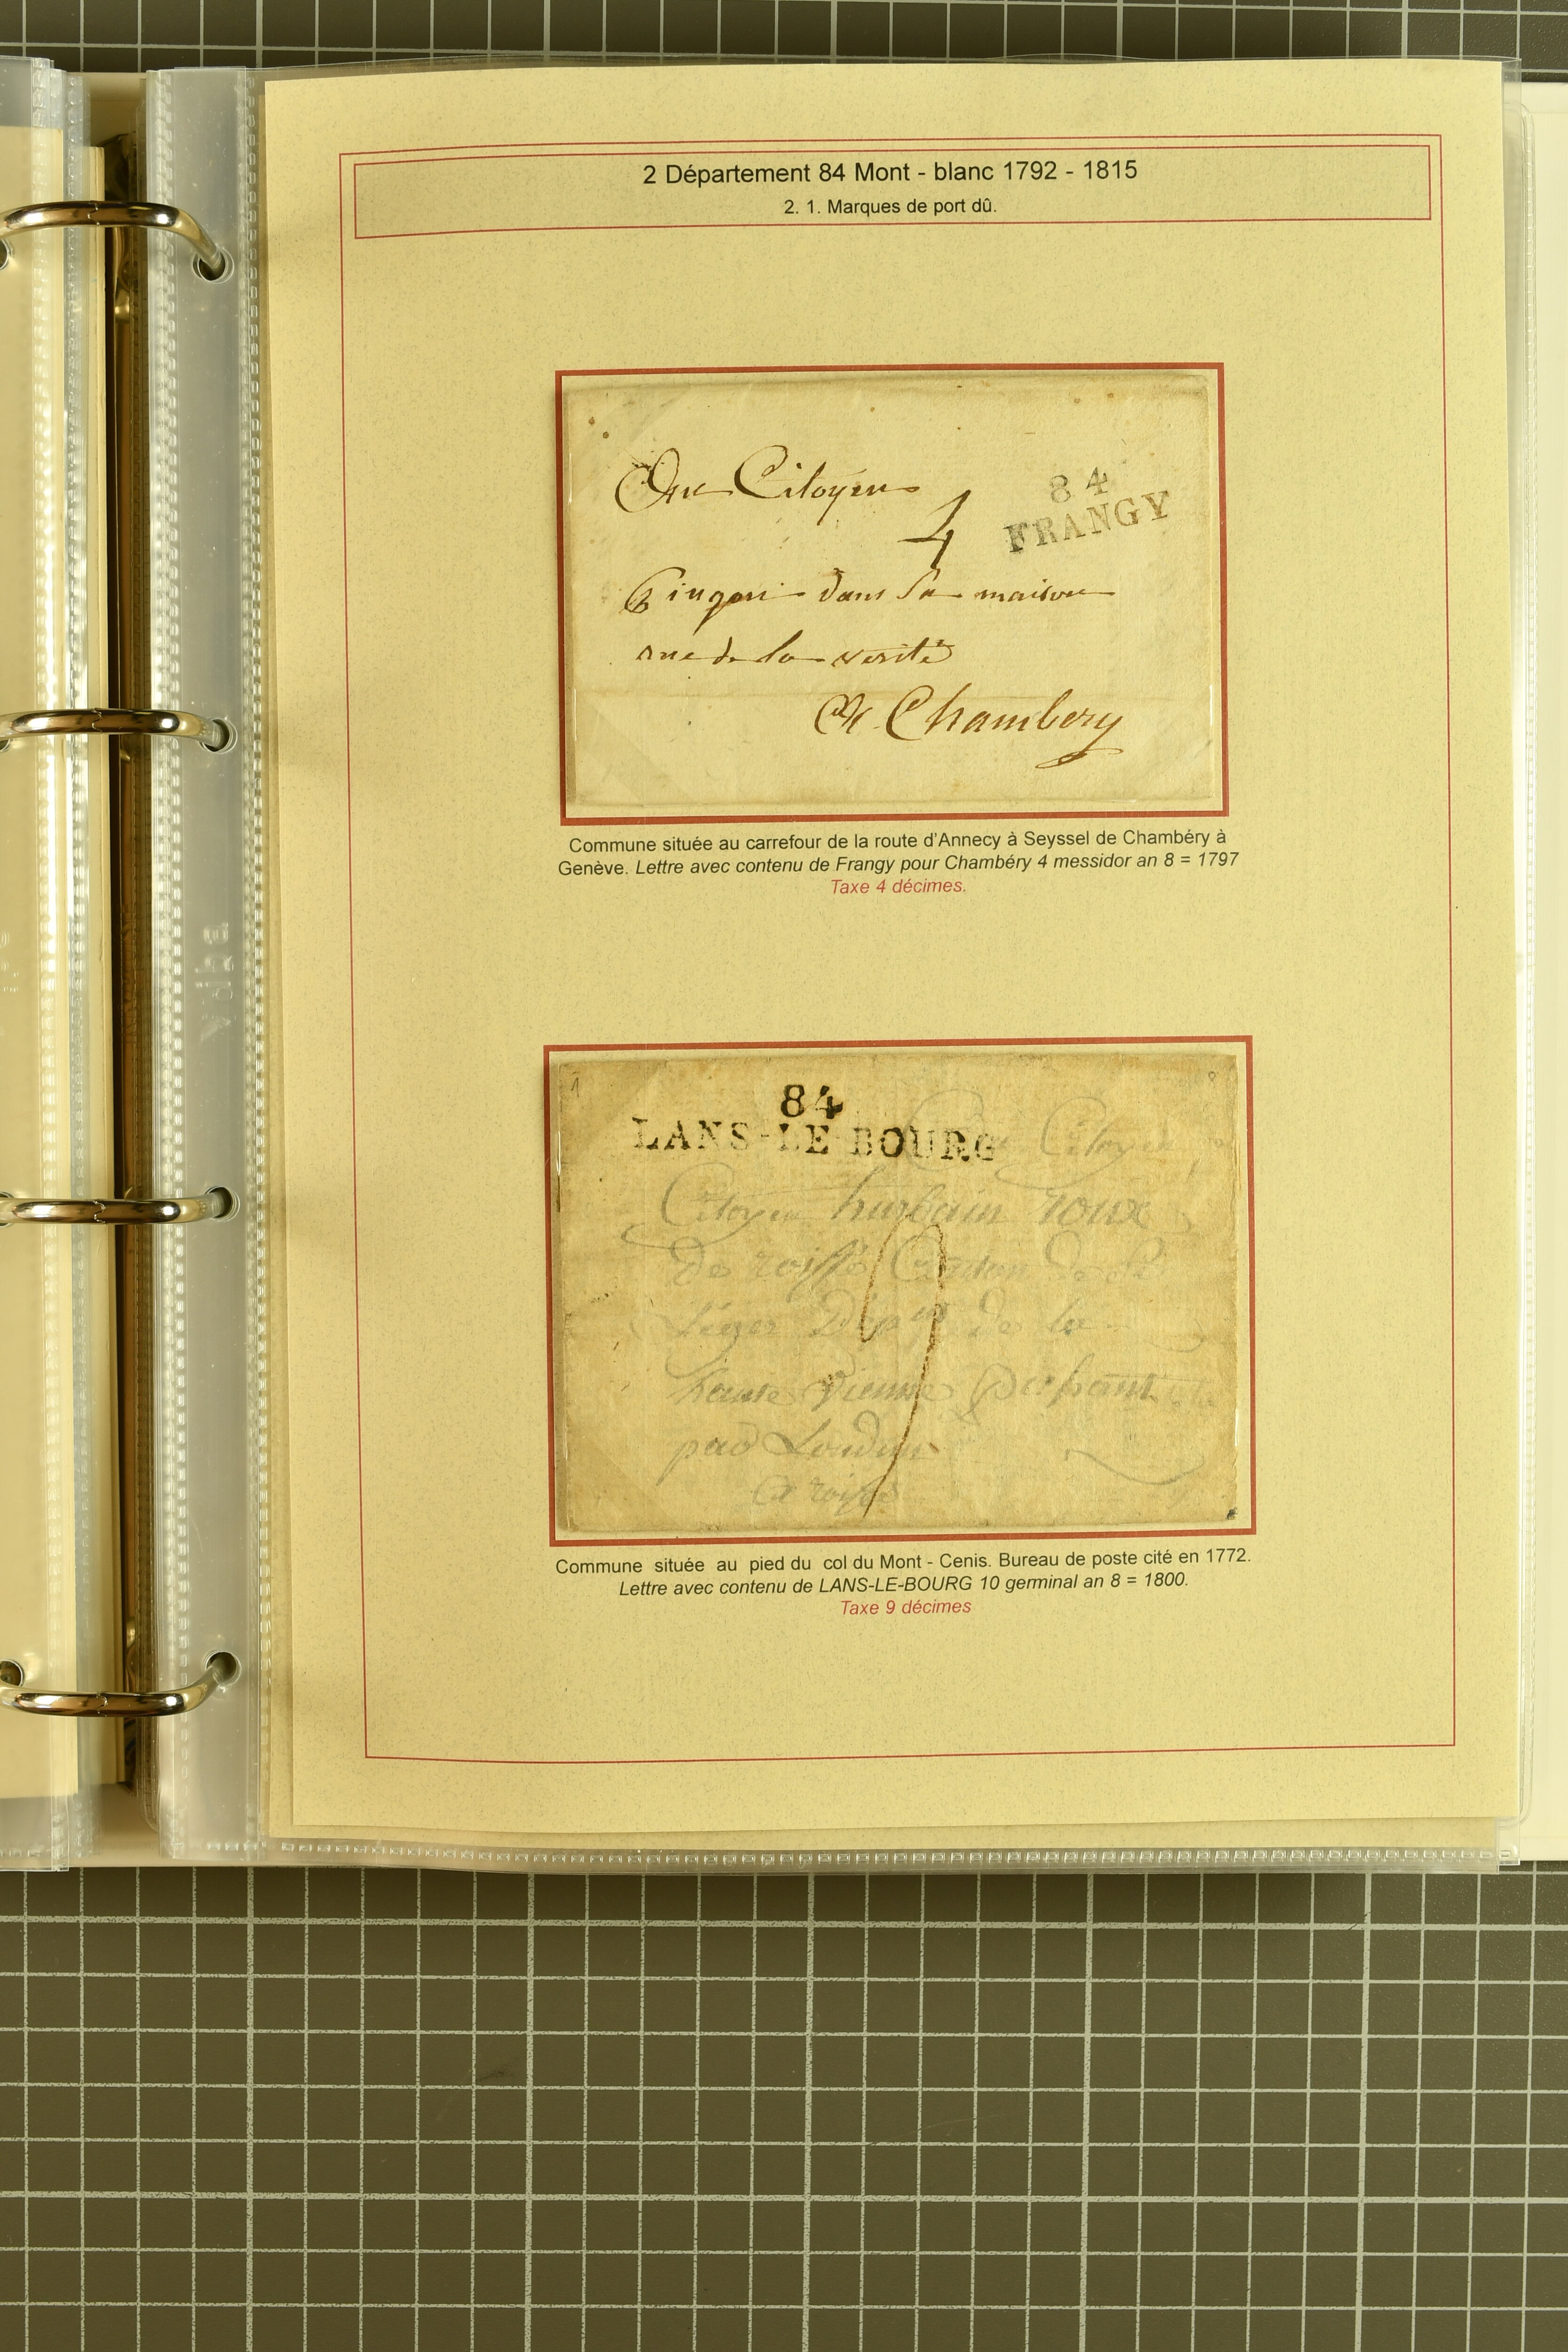 2 Département 84 Mont - blanc 1792 - 1815
2. 1. Marques de port dû.
Citoyen
84
FRANGY
4
dans sa maison
rue de la verité
A Chambery
Commune située au carrefour de la route d'Annecy à Seyssel de Chambéry à
Genève. Lettre avec contenu de Frangy pour Chambéry 4 messidor an 8 = 1797
Taxe 4 décimes.
84
LANS-LE-BOURG
Citoyen
Citoyen hurbain roux
de Canton de
léger de la
haute vienne
par Loudun
9
Commune située au pied du col du Mont - Cenis. Bureau de poste cité en 1772.
Lettre avec contenu de LANS-LE-BOURG 10 germinal an 8 = 1800.
Taxe 9 décimes